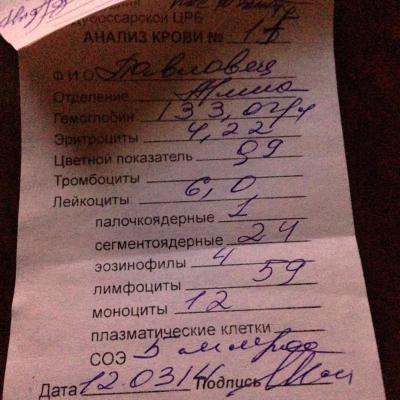 Дубоссарской ЦРБ
АНАЛИЗ КРОВИ № 15
Ф И О Павловец
Отделение
Гемоглобин 133,0 г/л
Эритроциты 4,22
Цветной показатель 0,9
Тромбоциты
Лейкоциты 6,0
палочкоядерные 1
сегментоядерные 24
эозинофилы 4
лимфоциты 59
моноциты 12
плазматические клетки
СОЭ 5 мм/час
Дата 12.03.14 Подпись